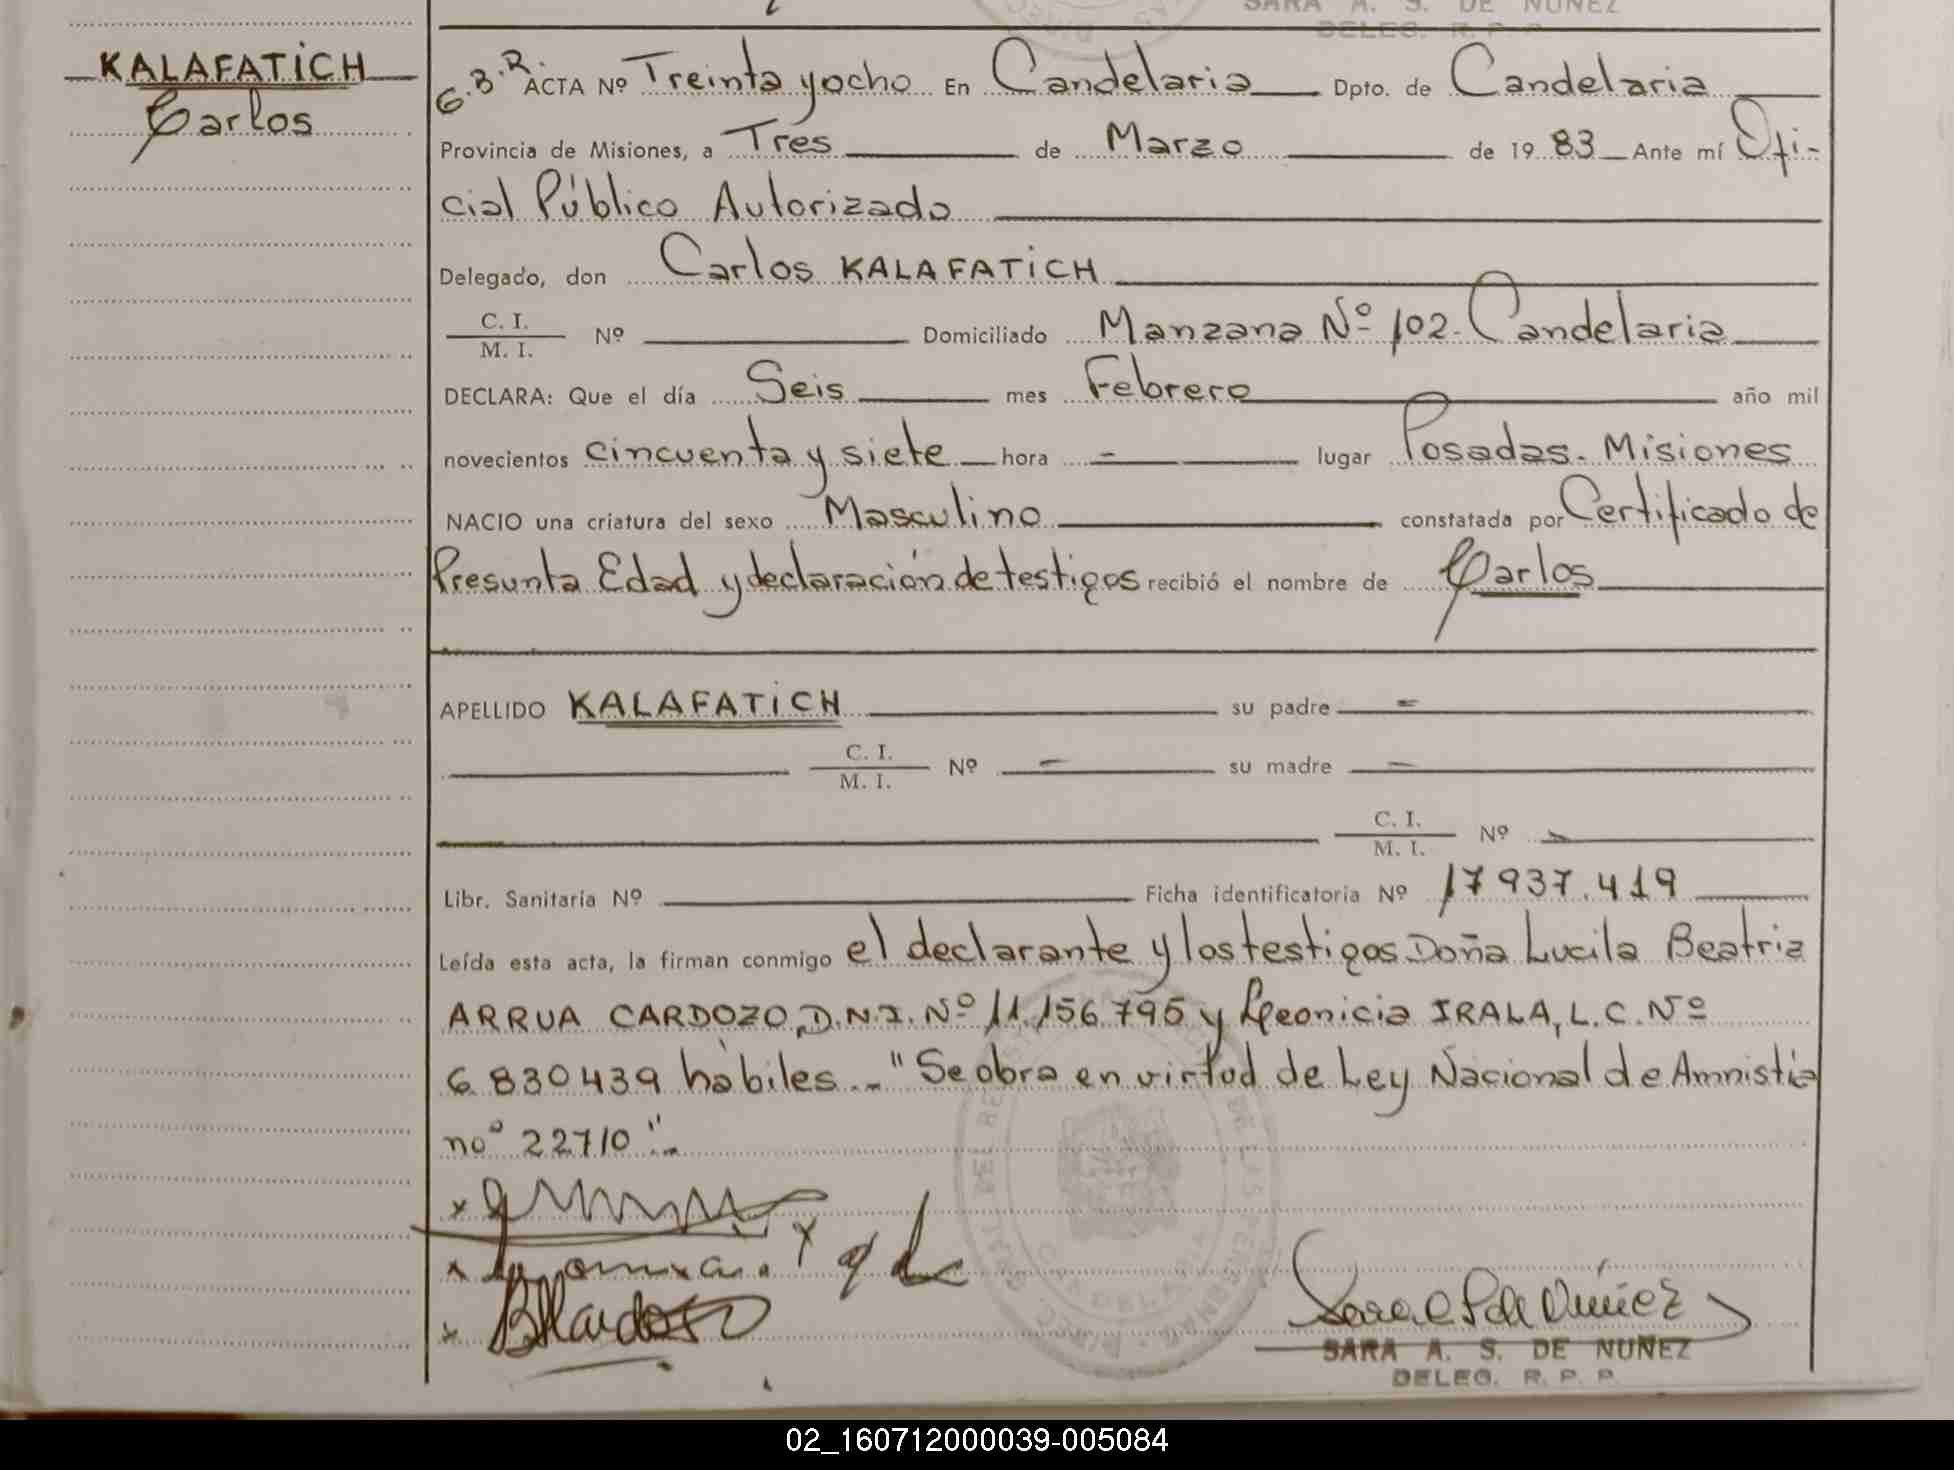 SARA A. S. DE NUÑEZ
DELEG. R. P. P.
KALAFATICH
Carlos
G.B.R. ACTA Nº Treinta y ocho En Candelaria Dpto. de Candelaria
Provincia de Misiones, a Tres de Marzo de 1983 Ante mí Ofi-
cial Público Autorizado
Delegado, don Carlos KALAFATICH
C. I.
M. I. Nº Domiciliado Manzana Nº 102. Candelaria
DECLARA: Que el día Seis mes Febrero año mil
novecientos cincuenta y siete hora - lugar Posadas. Misiones
NACIO una criatura del sexo Masculino constatada por Certificado de
Presunta Edad y declaración de testigos recibió el nombre de Carlos
APELLIDO KALAFATICH su padre -
C. I.
M. I. Nº - su madre -
C. I.
M. I. Nº -
Libr. Sanitaria Nº Ficha identificatoria Nº 17937.419
Leída esta acta, la firman conmigo el declarante y los testigos Doña Lucila Beatriz
ARRUA CARDOZO, D.N.I. Nº 11.156.795 y Leonicia IRALA, L.C. Nº
6.830439 hábiles.- "Se obra en virtud de Ley Nacional de Amnistía
noº 22710".-
SARA A. S. DE NUÑEZ
DELEG. R. P. P.
02_160712000039-005084